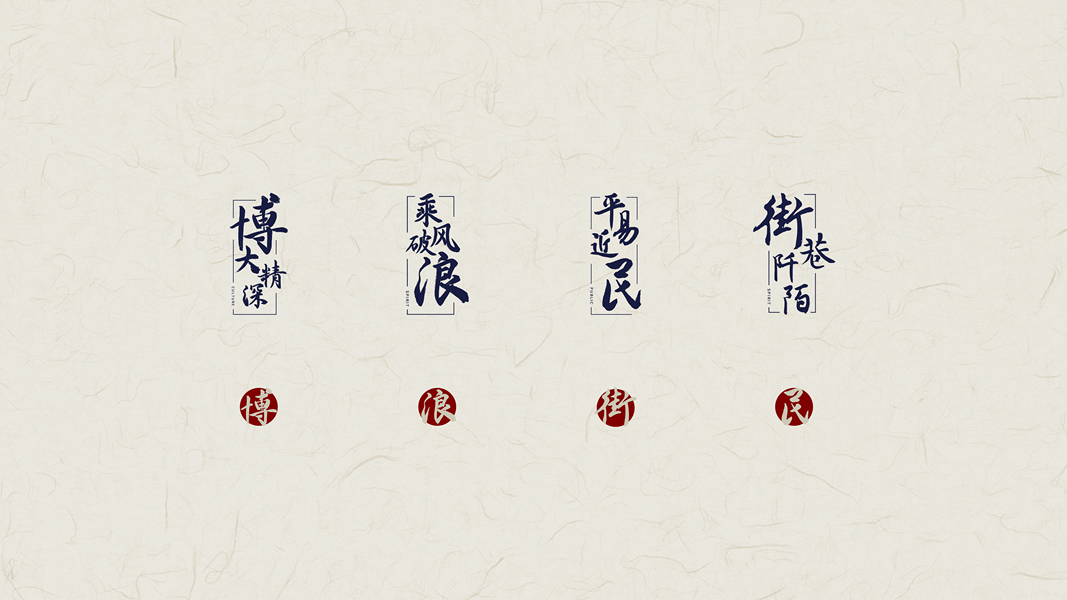 博大精深
CULTURE
乘风破浪
SPIRIT
平易近民
PUBLIC
街巷阡陌
SPIRIT
博
浪
街
民